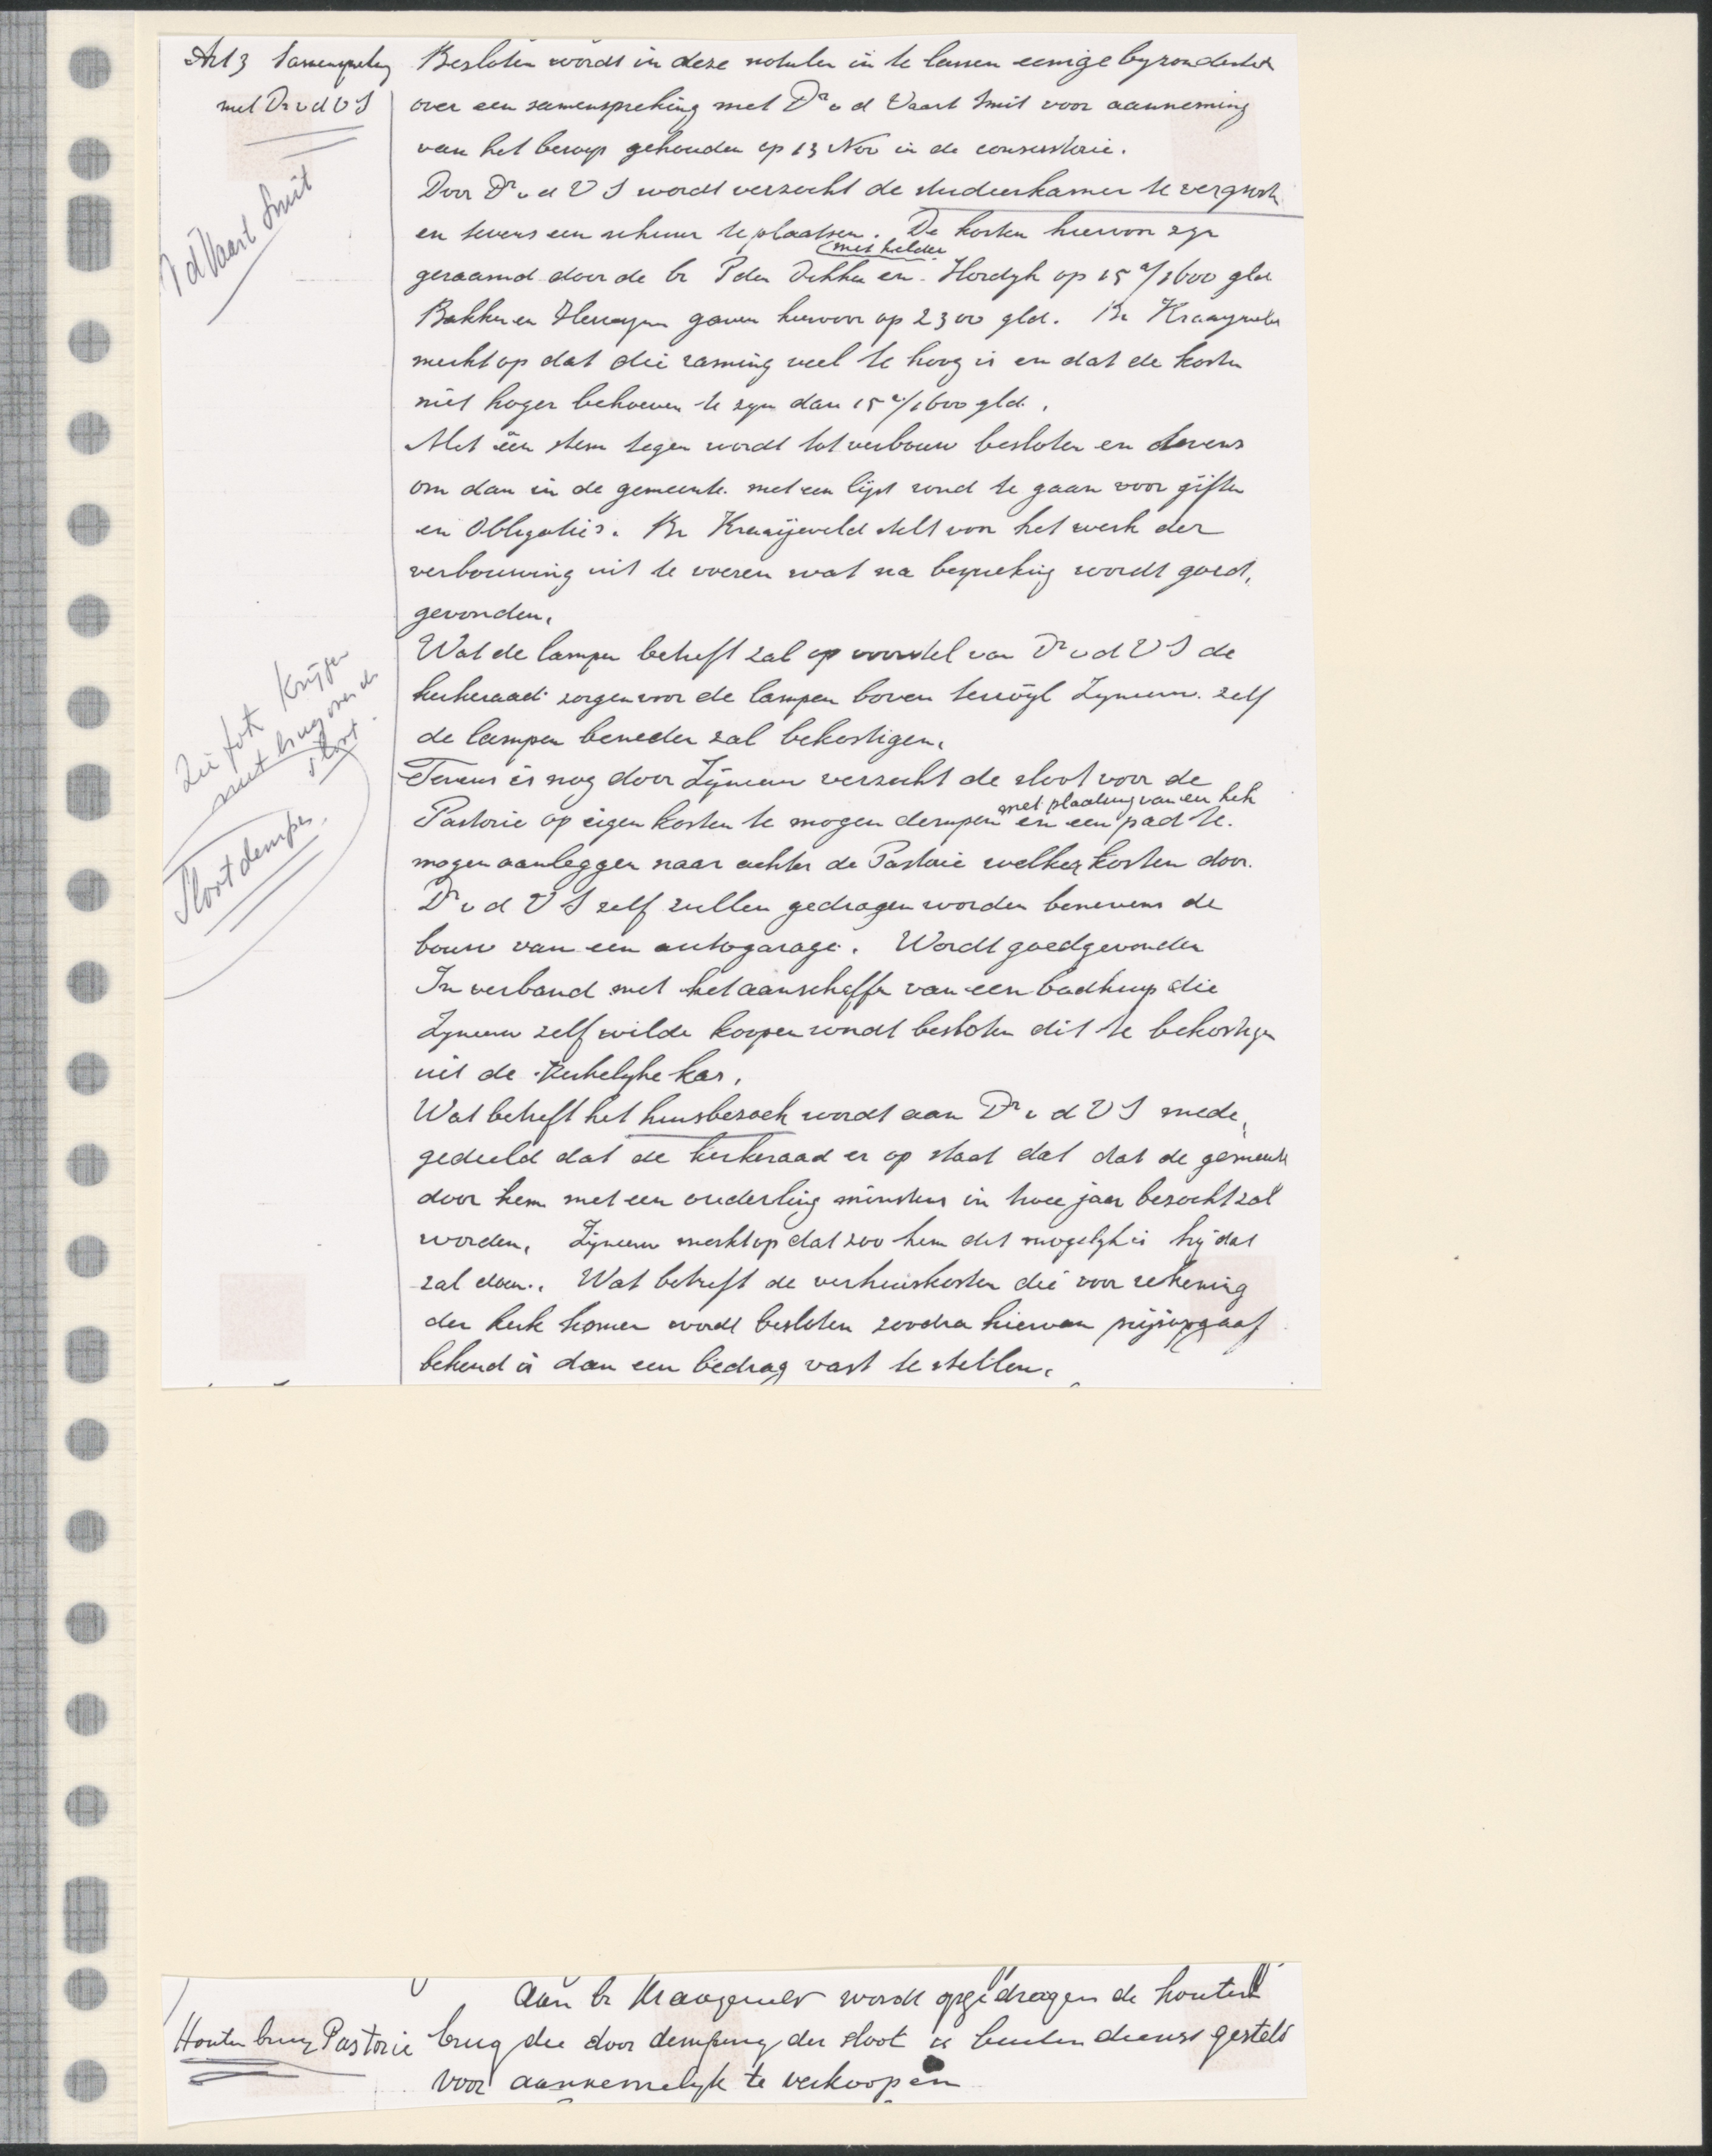 Art 3 Samenspreking
met Dr v d V S
v d Vaart Smit
Besloten wordt in deze notulen in te lassen eenige byzonderheden
over een samenspreking met Dr v d Vaart Smit voor aanneming
van het beroep gehouden op 13 Nov in de consistorie.
Door Dr v d V S wordt verzocht de studeerkamer te vergrooten
en tevens een schuur te plaatsen. De kosten hiervan zyn
(met kelder
geraamd door de br P den Dekker en Hordyk op 15 a/1600 gld
Bakker en gaven hiervoor op 2300 gld. Br Kraayeveld
merkt op dat die raming veel te hoog is en dat de kosten
niet hoger behoeven te zyn dan 15 a/1600 gld.
Met één stem tegen wordt tot verbouw besloten en tevens
om dan in de gemeente met een lijst rond te gaan voor giften
en Obligatie's. Br Kraaijeveld stelt voor het werk der
verbouwing uit te voeren wat na bespreking wordt goed,
gevonden.
Wat de lampen betreft zal op voorstel van Dr v d V S de
kerkeraad zorgen voor de lampen boven terwijl Zyneerw. zelf
de lampen beneden zal bekostigen.
Zie foto Krijgen
met brug over de
sloot.
Sloot dempen.
Tevens is nog door Zijneerw verzocht de sloot voor de
met plaatsing van een hek
Pastorie op eigen kosten te mogen dempen en een pad te
mogen aanleggen naar achter de Pastorie welker kosten door
Dr v d V S zelf zullen gedragen worden benevens de
bouw van een autogarage. Wordt goedgevonden
In verband met het aanschaffen van een badkuip die
Zyneerw zelf wilde koopen wordt besloten dit te bekostigen
uit de Kerkelyke kas.
Wat betreft het huisbezoek wordt aan Dr v d V S mede,
gedeeld dat de kerkeraad er op staat dat dat de gemeente
door hem met een ouderling minstens in twee jaar bezocht zal
worden. Zijneerw merkt op dat zoo hem dit mogelyk is hij dat
zal doen. Wat betreft de verhuiskosten die voor rekening
der kerk komen wordt besloten zoodra hiervan prijsopgaaf
bekend is dan een bedrag vast te stellen.
Houten brug Pastorie
Aan br Kraayeveld wordt opgedragen de houten
brug die door demping der sloot is buiten dienst gesteld
voor aannemelyk te verkoopen